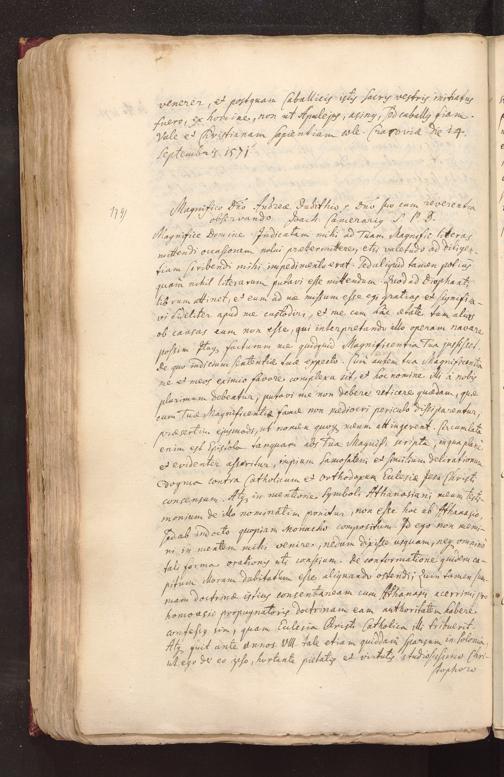 venerer, et postquam Caballicis istis sacris vestris initiatus
fuero, ex homine, non ut Apulejus, asinus, sed caballus fiam.
Vale et Christianam sapientiam cole. Cracovia die 14.
Septembris 1571
Magnifico Dno Andreae Dudithio, Dno suo cum reverentia
observando Joach. Camerarius S. P. D.
Magnifice Domine. Indicatam mihi ad Tuam Magnific. literas
mittendi occasionem nolui praetermittere, etsi valetudo ad diligen-
tiam scribendi mihi impedimento erat. Sed aliquid tamen potius
quam nihil literarum putavi esse mittendum. Quod ad Diophanti
librum attinet, et eum ad me missum esse egi gratias et significa-
vi fideliter apud me custodiri, et me cum hac aetate tum alias
ob causas eum non esse, qui interpretando illo operam navare
possim facturum me quidquid Magnificentia Tua jussisset.
De quo indicium sententiae tuae expecto. Cum autem tua Magnificentia
me et meos eximio favore complexa sit, et hoc nomine illi a nobis
plurimum debeatur, putavi me non debere reticere quaedam, quae
cum Tuae Magnificentiae famae non mediocri periculo dissiparentur,
praesertim ejusmodi, ut nomen quoque meum attingerent. Circumlata
enim est Epistola tanquam abs Tua Magnif. scripta, in qua plane
et evidenter asseritur, impium Samosateni et similium delirationum
dogma contra Catholicum et orthodoxum Ecclesiae Jesu Christi
consensum. Atque in mentione Symboli Athanasiani meum testi-
monium de illo nominatim ponitur, non esse hoc ab Athanasio,
sed ab indocto quopiam monacho compositum. Id ego non memi-
ni in mentem mihi venire, nedum dixisse usquam, neque omnino
tali forma orationis uti consuevi. De conformatione quidem ca-
pitum illorum dubitatum esse aliquando ostendi, quin tamen sum-
mam doctrinae istius consentaneam cum Athanasii acerrimi
homousiae propugnatoris doctrinam eam authoritatem habere
confessus sim, quam Ecclesia Christi Catholica illi tribuerit.
Atque quit ante annos VIII tale etiam quiddam sparsum in Polonia
ut ego de eo scio, hortante pietatis et virtutis studiosissimo Chri-
stophoro